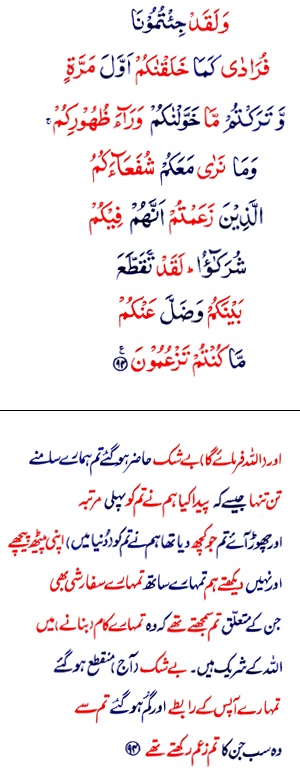 وَلَقَدْ جِئْتُمُوْنَا
فُرَادٰى كَمَا خَلَقْنٰكُمْ اَوَّلَ مَرَّةٍ
وَّ تَرَكْتُمْ مَّا خَوَّلْنٰكُمْ وَرَآءَ ظُهُوْرِكُمْ ۚ
وَمَا نَرٰى مَعَكُمْ شُفَعَآءَكُمُ
الَّذِيْنَ زَعَمْتُمْ اَنَّهُمْ فِيْكُمْ
شُرَكٰٓؤُا ؕ لَقَدْ تَّقَطَّعَ
بَيْنَكُمْ وَضَلَّ عَنْكُمْ
مَّا كُنْتُمْ تَزْعُمُوْنَ ﴿۹۴﴾ ع
اور (اللہ فرمائے گا) بے شک حاضر ہوگئے تم ہمارے سامنے
تن تنہا جیسے کہ پیدا کیا ہم نے تم کو پہلی مرتبہ
اور چھوڑ آئے تم جو کچھ دیا تھا ہم نے تم کو (دُنیا میں) اپنی پیٹھ پیچھے
اور نہیں دیکھتے ہم تمہارے ساتھ تمہارے سفارشی بھی
جن کے متعلّق تم سمجھتے تھے کہ وہ تمہارے کام (بنانے) میں
اللہ کے شریک ہیں۔ بے شک (آج) منقطع ہوگئے
تمہارے آپس کے رابطے اور گُم ہوگئے تم سے
وہ سب جن کا تم زعم رکھتے تھے ﴿۹۴﴾